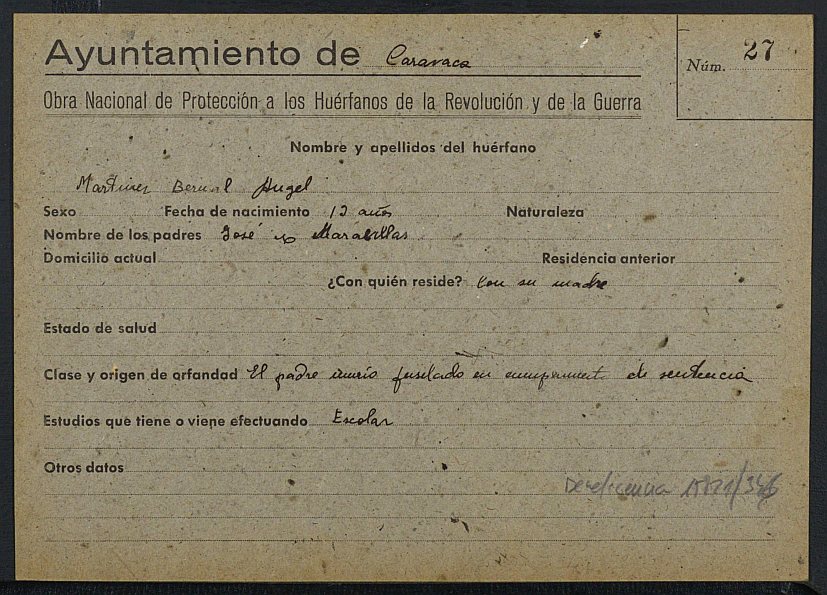 Ayuntamiento de Caravaca
Núm. 27
Obra Nacional de Protección a los Huérfanos de la Revolución y de la Guerra
Nombre y apellidos del huérfano
Martinez Bernal Angel
Sexo Fecha de nacimiento 12 años Naturaleza
Nombre de los padres José y Maravillas
Domicilio actual Residencia anterior
¿Con quién reside? Con su madre
Estado de salud
Clase y origen de orfandad El padre murio fusilado en de sentencia
Estudios que tiene o viene efectuando Escolar
Otros datos
Beneficencia